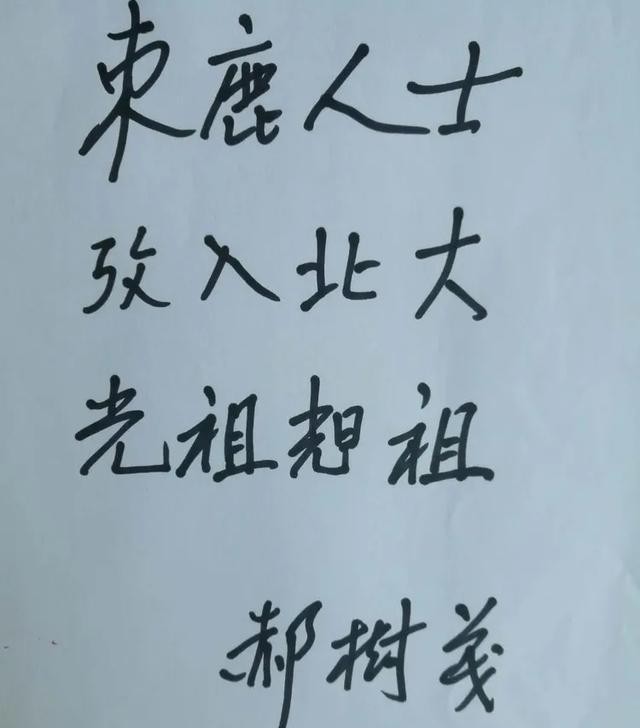 束鹿人士
攷入北大
光祖祖
郝樹茂